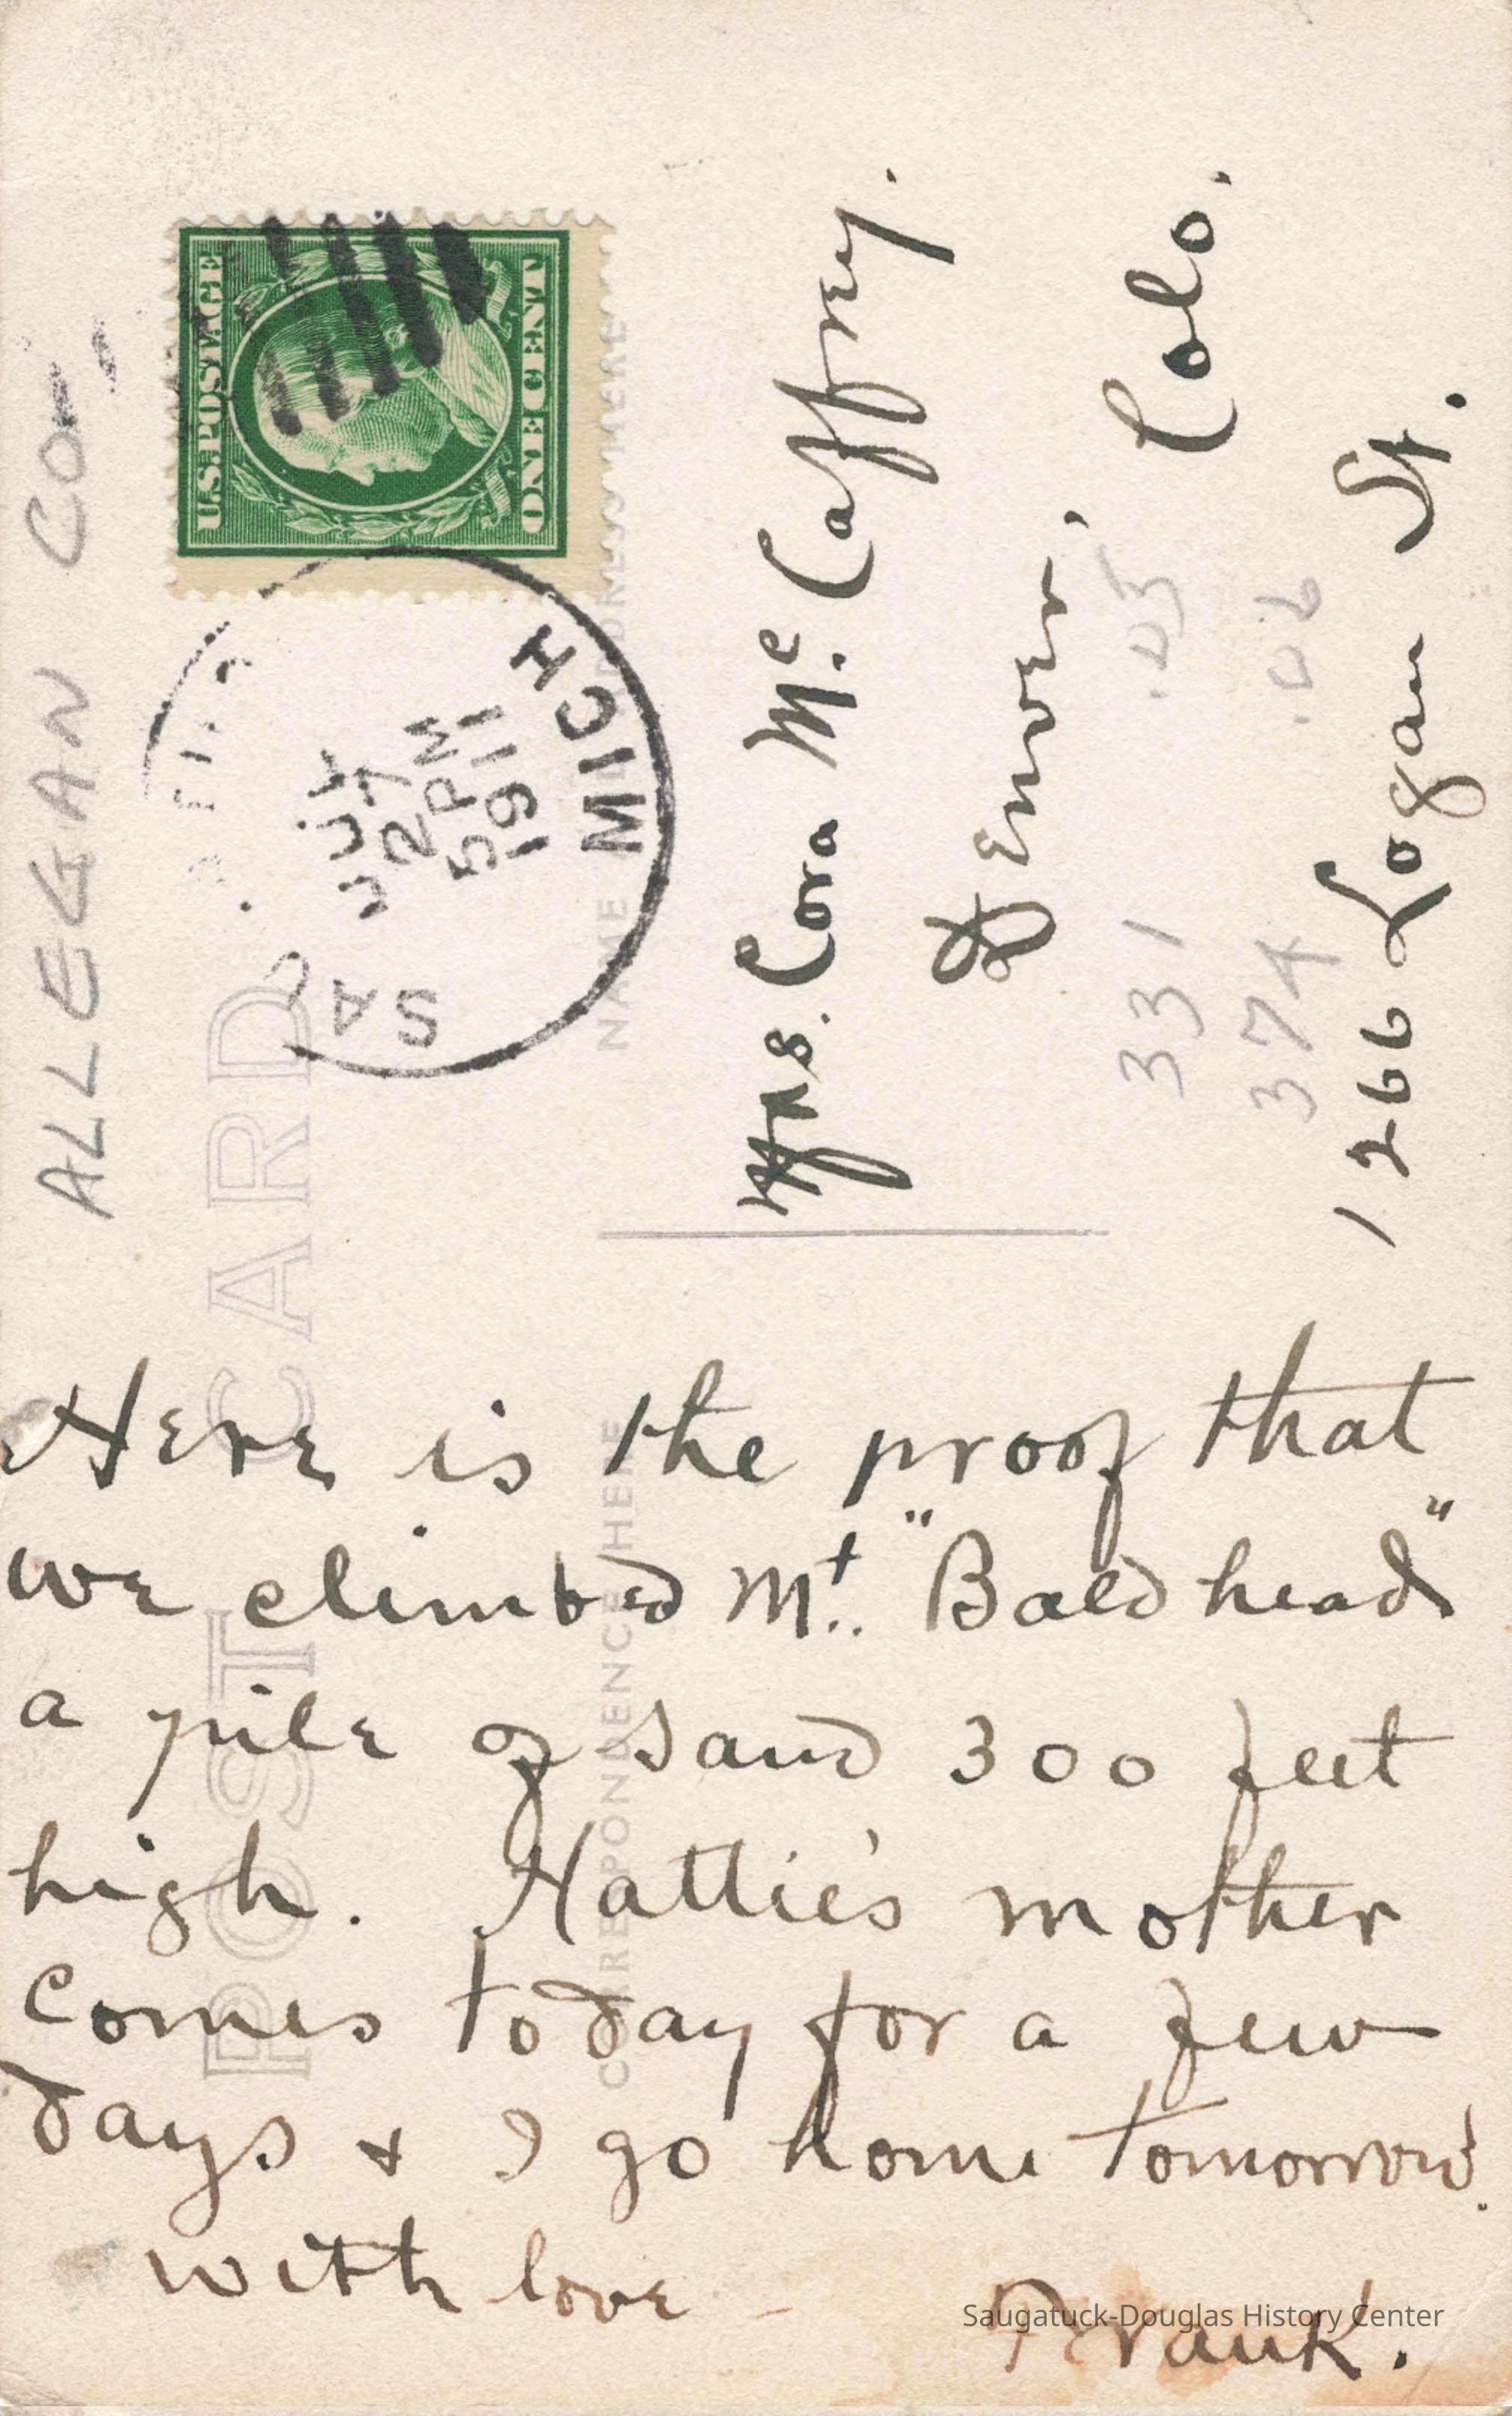 ALLEGAN CO.
POST CARD
U.S. POSTAGE
ONE CENT
SA
MICH
JULY
27
5 PM
1911
CORRESPONDENCE HERE
NAME AND ADDRESS HERE
Mrs. Cora Mc. Caffrey.
Denver, Colo.
331 .05
374 .06
1266 Logan St.
Here is the proof that
we climbed Mt. "Baldhead"
a pile of sand 300 feet
high. Hattie's mother
comes today for a few
days + I go home tomorrow.
with love
Frank.
Saugatuck-Douglas History Center